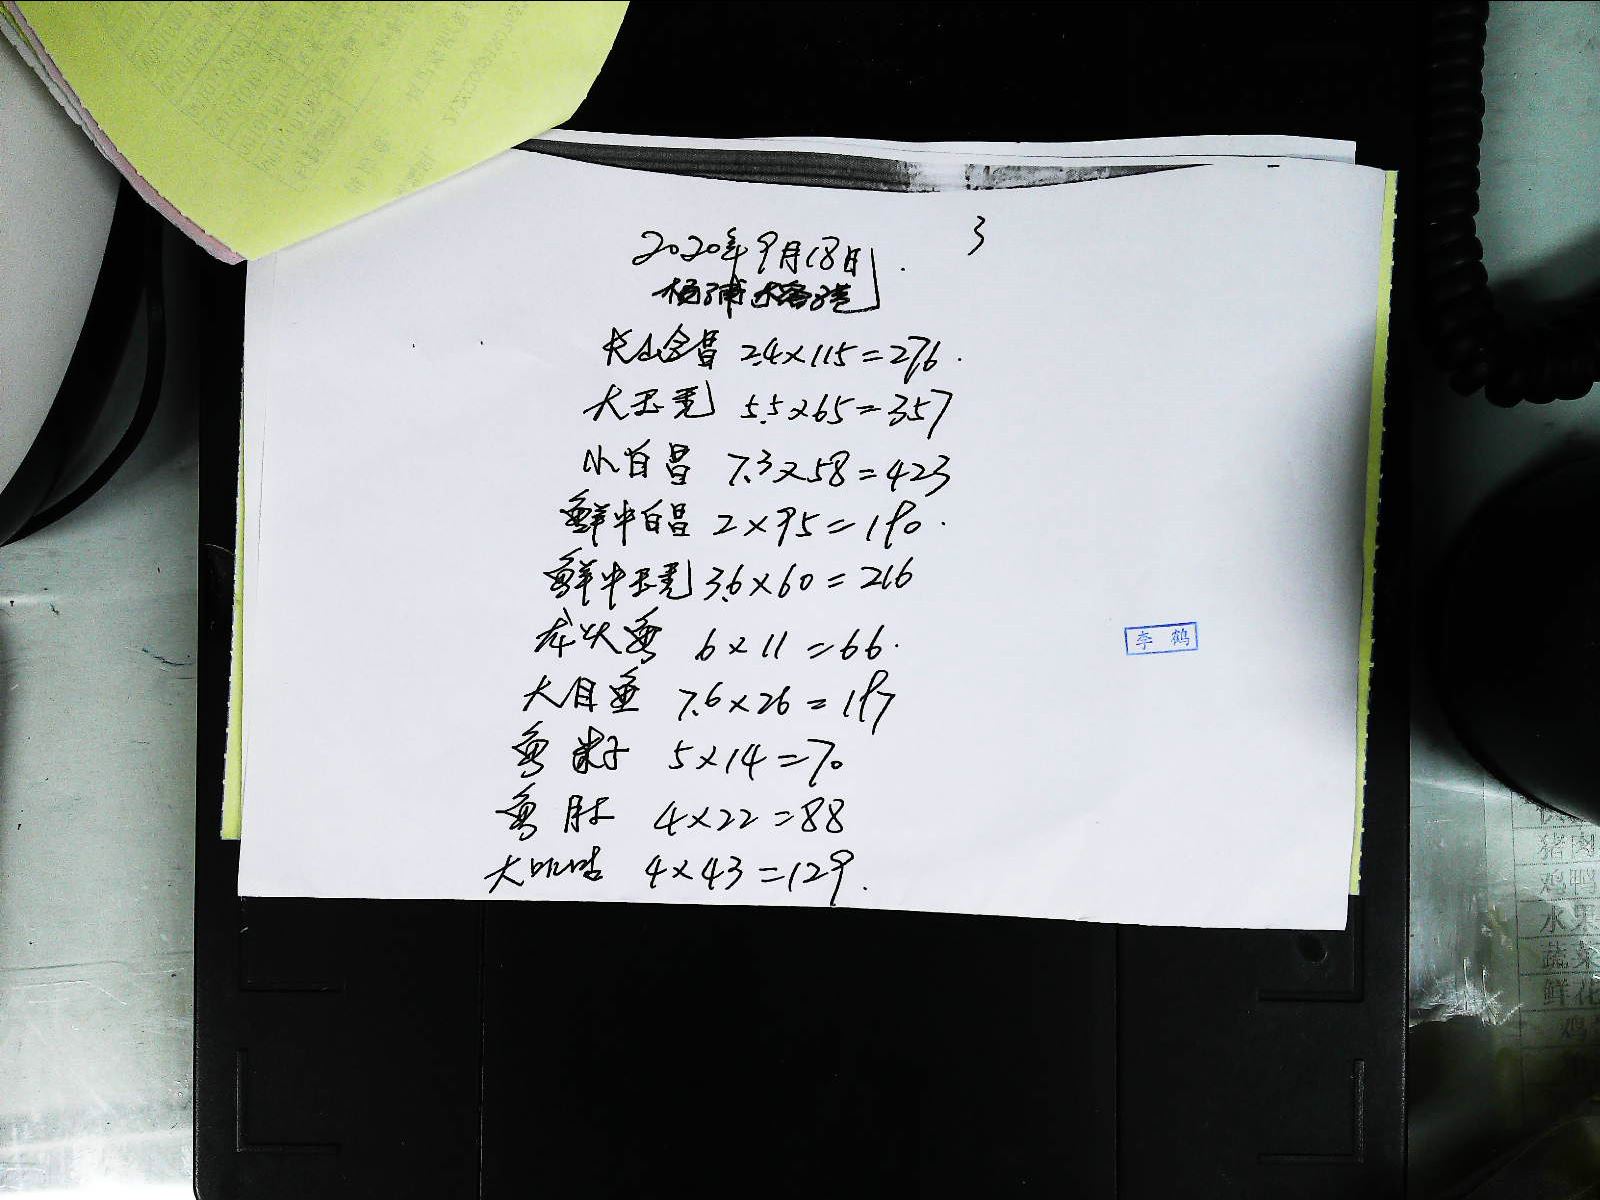 3
2020年9月18日
杨浦大酒店
长山仓昌 2.4×115=276.
大玉秃 5.5×65=357
小白昌 7.3×58=423
鲜中白昌 2×95=190.
鲜中玉秃 3.6×60=216
龙头鱼 6×11=66.
大目鱼 7.6×26=197
鱼米子 5×14=70
鱼肚 4×22=88
大 4×43=129.
李鹤
猪肉
鸡鸭
水果
蔬菜
鲜花
鸡